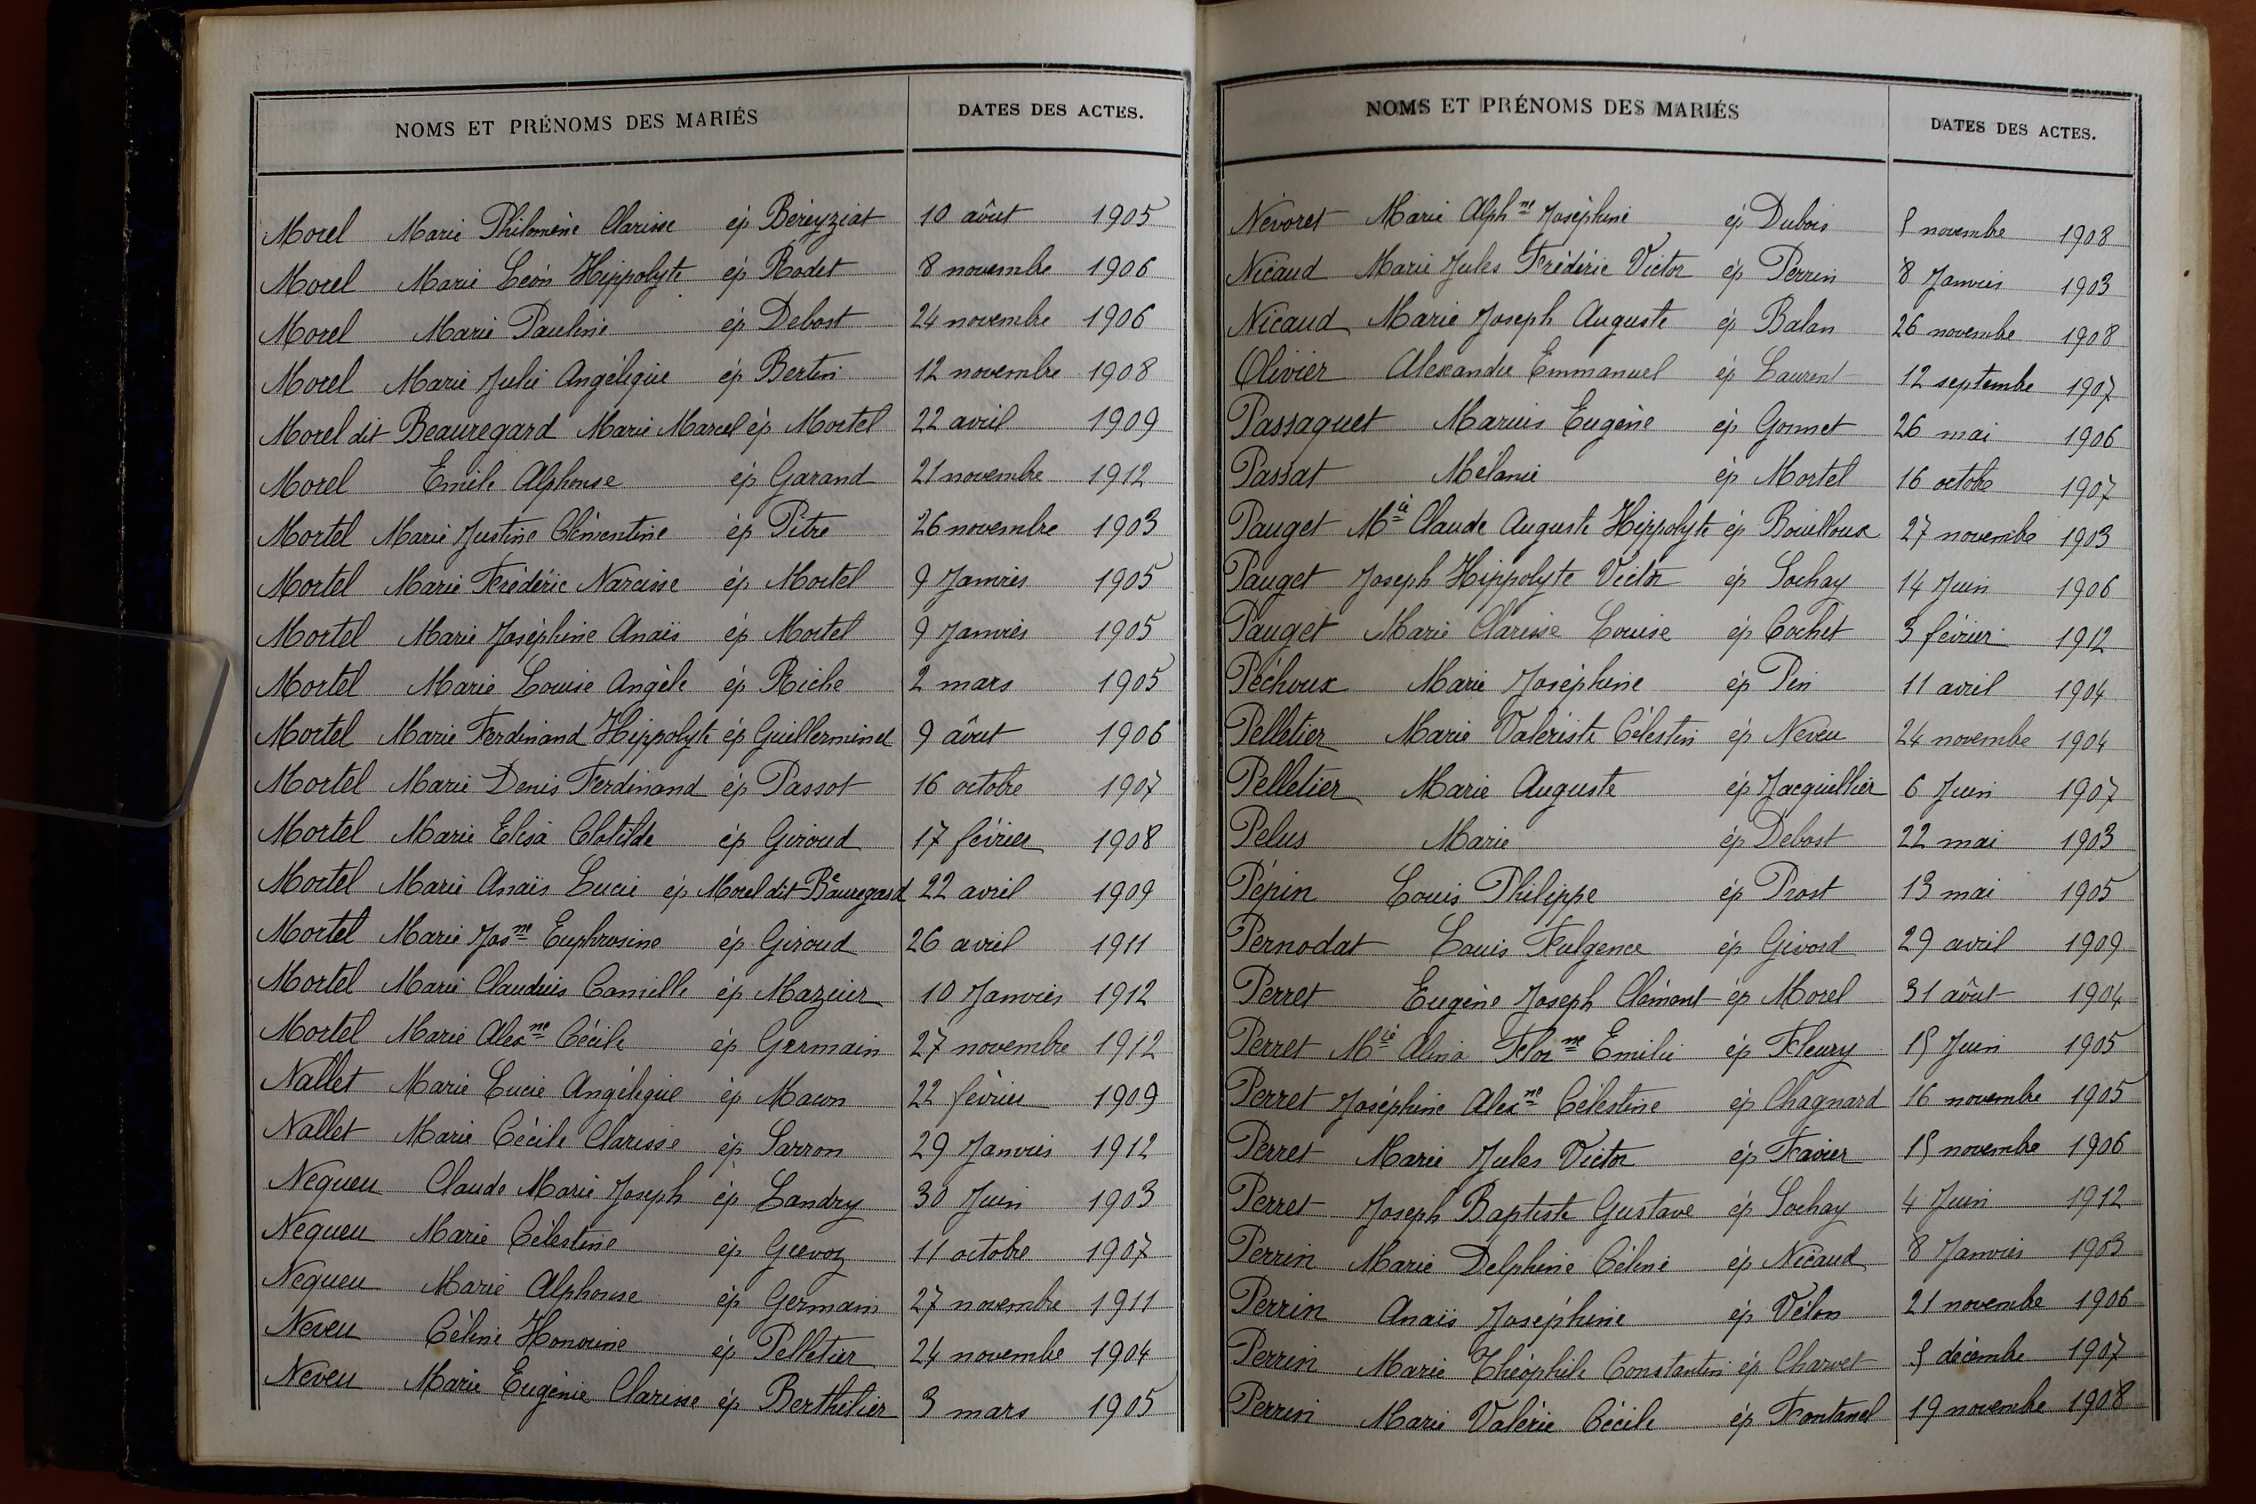 NOMS ET PRÉNOMS DES MARIÉS DATES DES ACTES.
Morel Marie Philomène Clarisse ép Béreyziat 10 août 1905
Morel Marie Léon Hippolyte ép Rodet 8 novembre 1906
Morel Marie Pauline ép Debost 24 novembre 1906
Morel Marie Julie Angélique ép Bertin 12 novembre 1908
Morel dit Beauregard Marie Marcel ép Mortel 22 avril 1909
Morel Emile Alphonse ép Garand 21 novembre 1912
Mortel Marie Justine Clémentine ép Pitre 26 novembre 1903
Mortel Marie Frédéric Narcisse ép Mortel 9 Janvier 1905
Mortel Marie Joséphine Anaïs ép Mortel 9 Janvier 1905
Mortel Marie Louise Angèle ép Riche 2 mars 1905
Mortel Marie Ferdinand Hippolyte ép Guilleminet 9 août 1906
Mortel Marie Denis Ferdinand ép Passot 16 octobre 1907
Mortel Marie Elisa Clotilde ép Giroud 17 février 1908
Mortel Marie Anaïs Lucie ép Morel dit Beauregard 22 avril 1909
Mortel Marie Jos.ne Euphrosine ép Giroud 26 avril 1911
Mortel Marie Claudius Camille ép Mazuir 10 Janvier 1912
Mortel Marie Alex.ne Cécile ép Germain 27 novembre 1912
Nallet Marie Lucie Angélique ép Macon 22 février 1909
Nallet Marie Cécile Clarisse ép Sarron 29 Janvier 1912
Nequeu Claude Marie Joseph ép Landry 30 Juin 1903
Nequeu Marie Célestine ép Grevoz 11 octobre 1907
Nequeu Marie Alphonse ép Germain 27 novembre 1911
Neveu Céline Honorine ép Pelletier 24 novembre 1904
Neveu Marie Eugénie Clarisse ép Berthilier 3 mars 1905
NOMS ET PRÉNOMS DES MARIÉS DATES DES ACTES.
Nevoret Marie Alph.ne Joséphine ép Dubois 5 novembre 1908
Nicaud Marie Jules Frédéric Victor ép Perrin 8 Janvier 1903
Nicaud Marie Joseph Auguste ép Balan 26 novembre 1908
Olivier Alexandre Emmanuel ép Laurent 12 septembre 1907
Passaquet Marius Eugène ép Gormet 26 mai 1906
Passat Mélanie ép Mortel 16 octobre 1907
Pauget M.ie Claude Auguste Hippolyte ép Bouilloux 27 novembre 1903
Pauget Joseph Hippolyte Victor ép Sochay 14 Juin 1906
Pauget Marie Clarisse Louise ép Cochet 3 février 1912
Péchoux Marie Joséphine ép Pin 11 avril 1904
Pelletier Marie Valériste Célestin ép Neveu 24 novembre 1904
Pelletier Marie Auguste ép Jacquillier 6 Juin 1907
Pelus Marie ép Debost 22 mai 1903
Pépin Louis Philippe ép Prost 13 mai 1905
Pernodat Louis Fulgence ép Givord 29 avril 1909
Perret Eugène Joseph Clément ép Morel 31 août 1904
Perret M.ie Alina Flor.ne Emilie ép Fleury 15 Juin 1905
Perret Joséphine Alex.ne Célestine ép Chagnard 16 novembre 1905
Perret Marie Jules Victor ép Favier 15 novembre 1906
Perret Joseph Baptiste Gustave ép Sochay 4 Juin 1912
Perrin Marie Delphine Céline ép Nicaud 8 Janvier 1903
Perrin Anaïs Joséphine ép Vélon 21 novembre 1906
Perrin Marie Théophile Constantin ép Charvet 5 décembre 1907
Perrin Marie Valérie Cécile ép Fontanel 19 novembre 1908